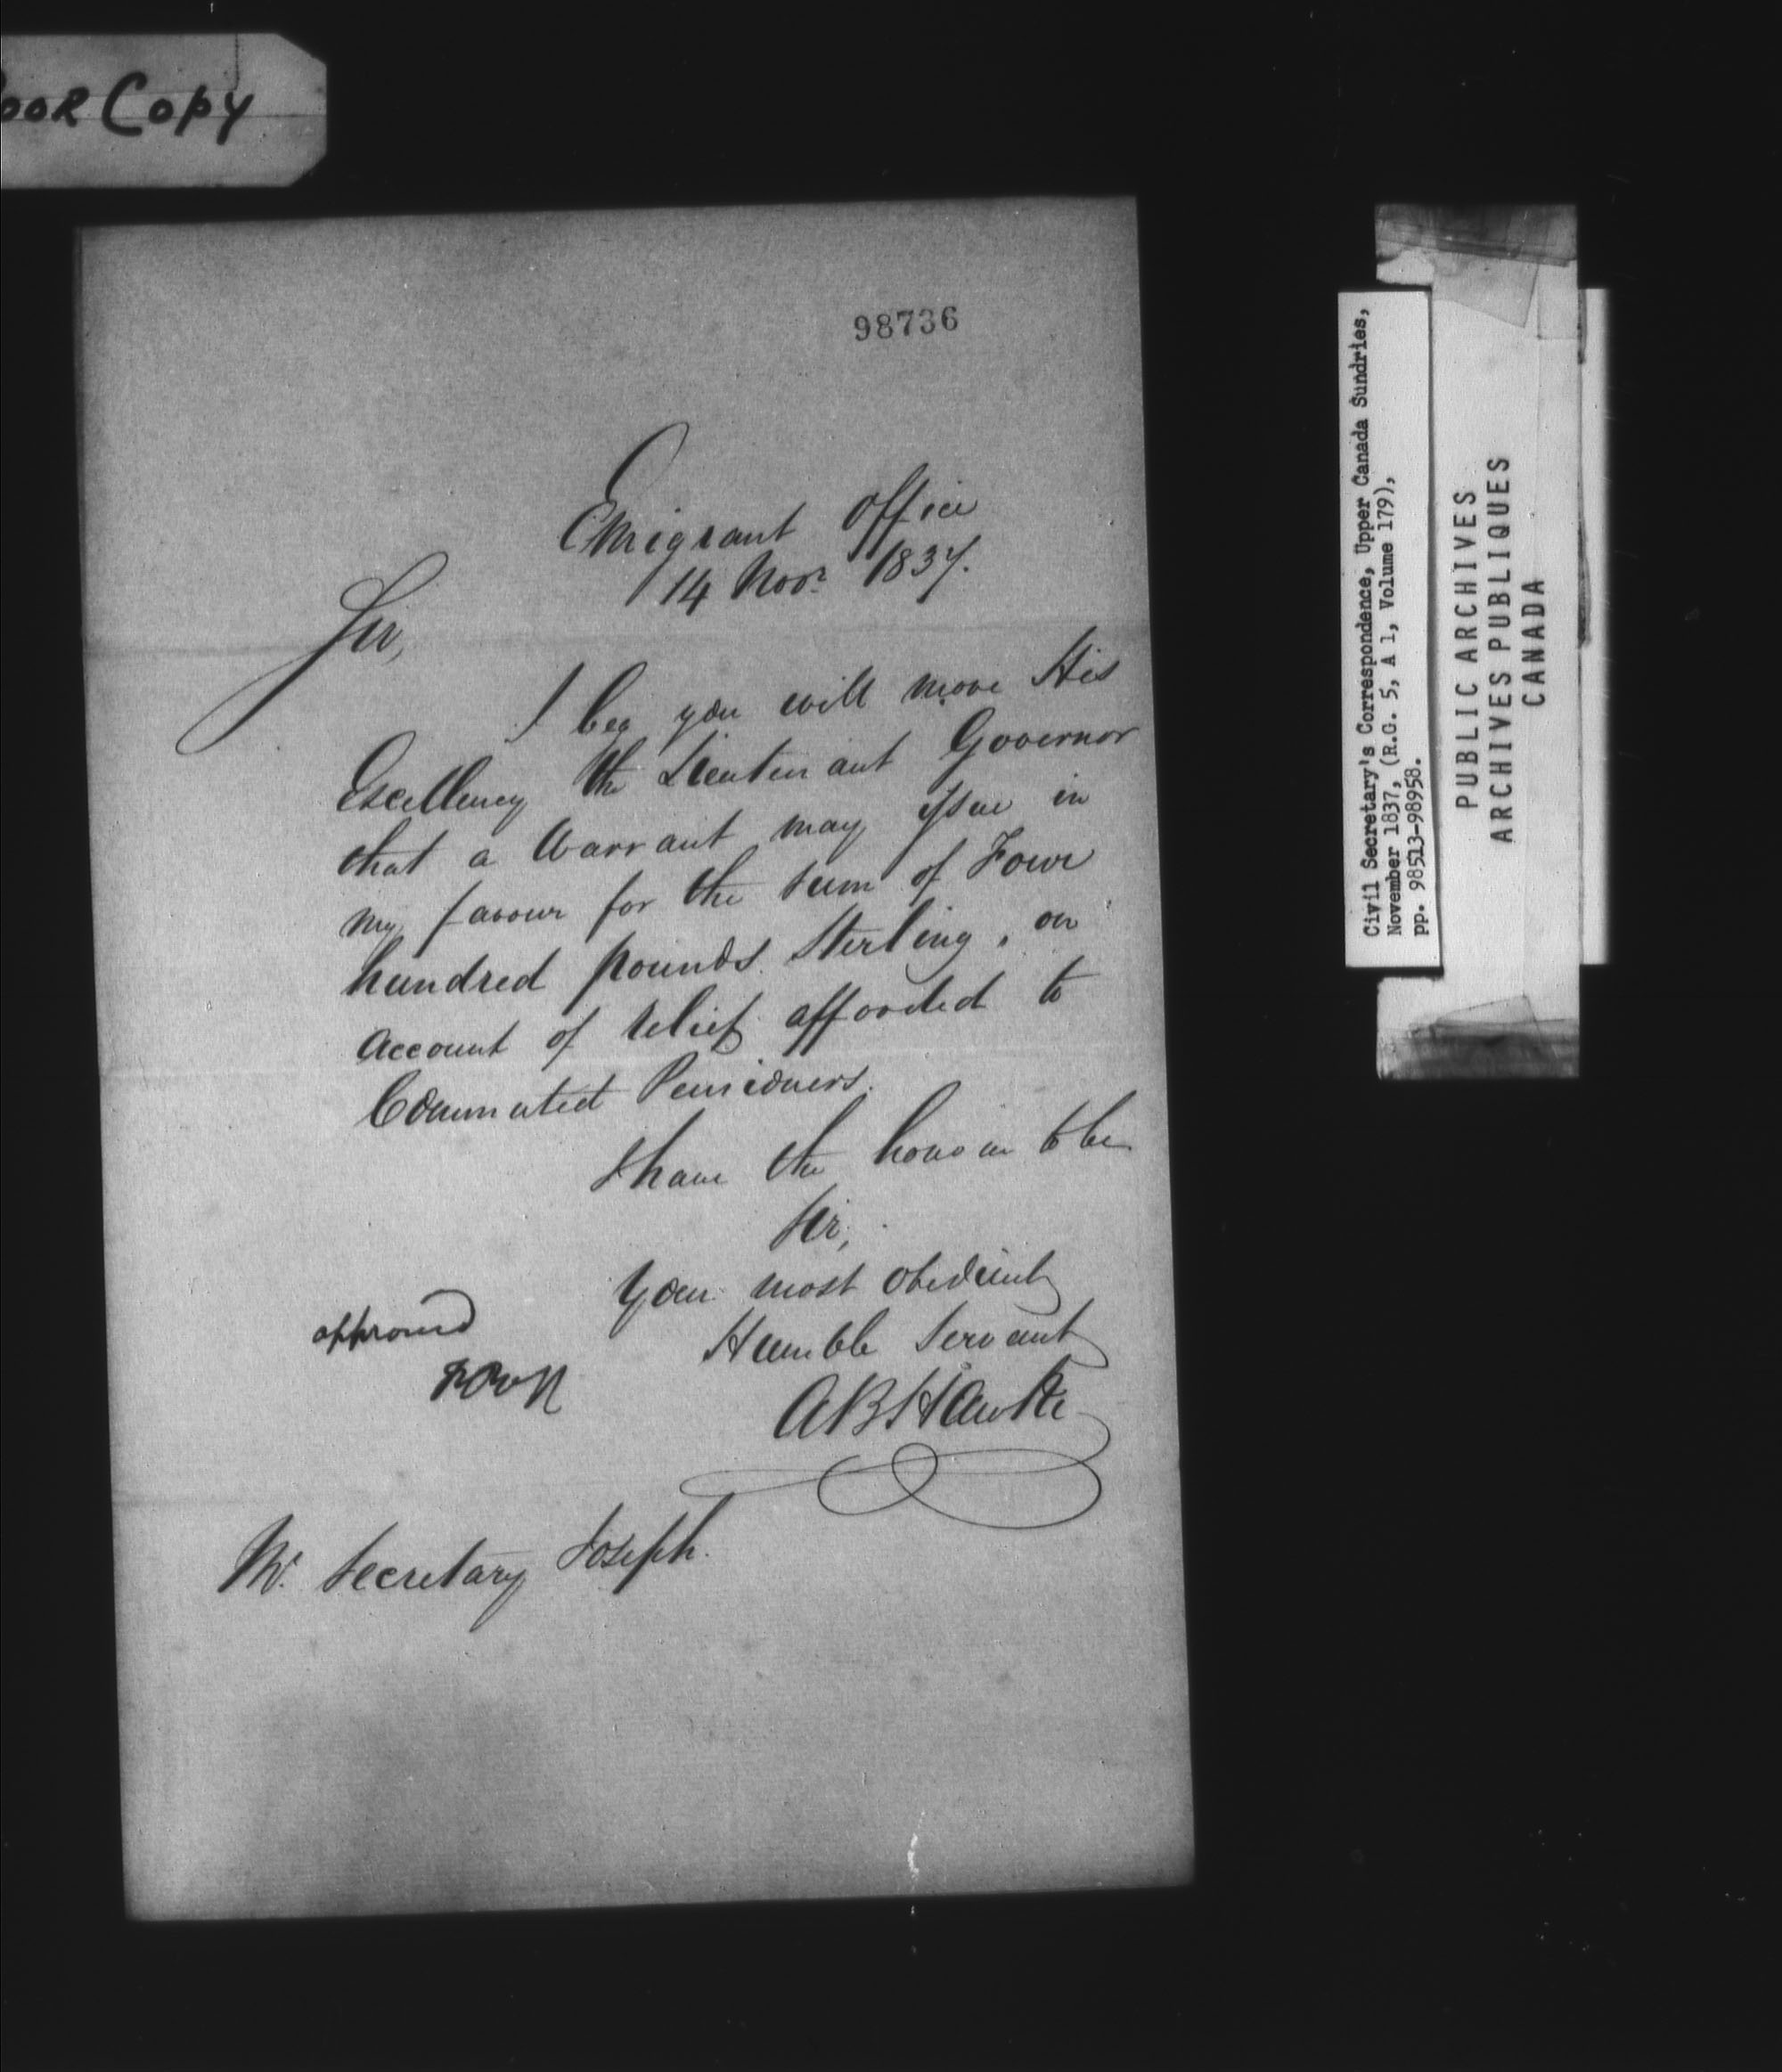 oor Copy
98736
Emigrant Office
14 Novr 1837.
Sir,
I beg you will move His
Excellency the Lieutenant Governor
that a Warrant may issue in
my favour for the sum of Four
hundred pounds Sterling, on
account of relief afforded to
Commuted Pensioners.
I have the honour to be
Sir,
Your most obedient
Humble Servant
A B Hawke
approved
Mr. Secretary Joseph.
Civil Secretary's Correspondence, Upper Canada Sundries,
November 1837, (R.G. 5, A 1, Volume 179),
pp. 98513-98958.
PUBLIC ARCHIVES
ARCHIVES PUBLIQUES
CANADA